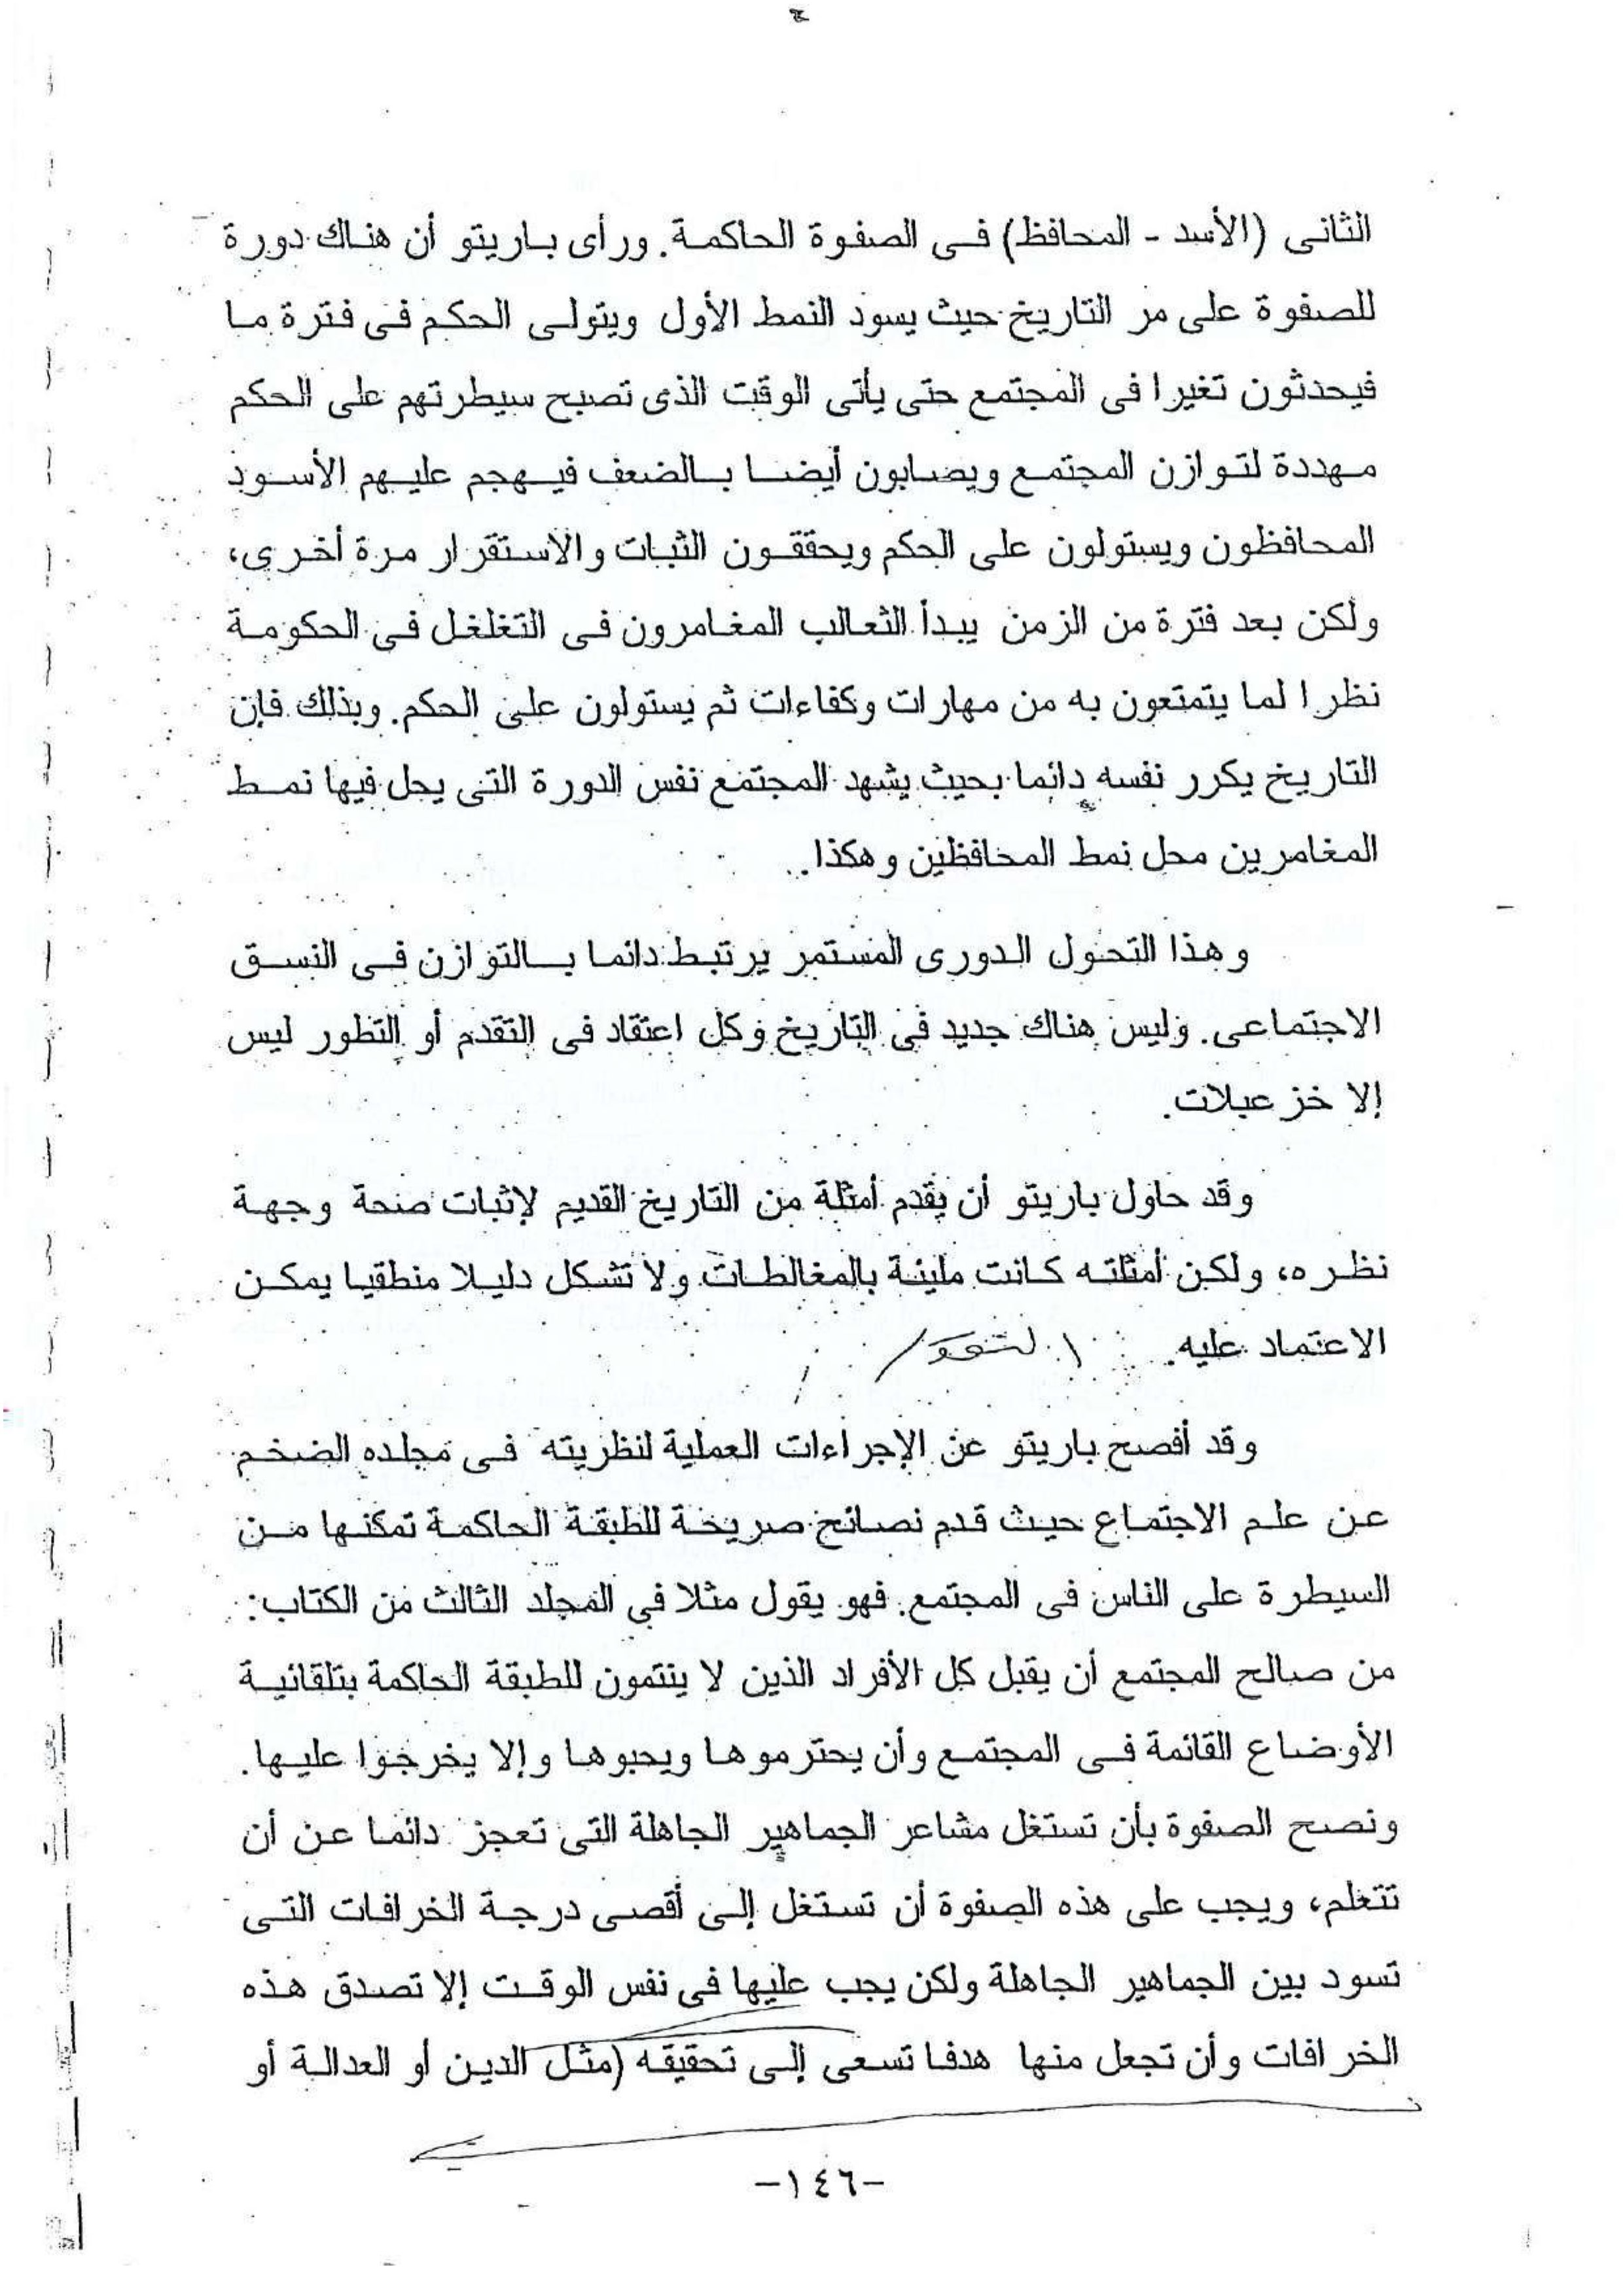 الثانى (الأسد - المحافظ) فى الصفوة الحاكمة. ورأى باريتو أن هناك دورة
للصفوة على مر التاريخ حيث يسود النمط الأول ويتولى الحكم فى فترة ما
فيحدثون تغيرا فى المجتمع حتى يأتى الوقت الذى تصبح سيطرتهم على الحكم
مهددة لتوازن المجتمع ويصابون أيضا بالضعف فيهجم عليهم الأسود
المحافظون ويستولون على الحكم ويحققون الثبات والاستقرار مرة أخرى،
ولكن بعد فترة من الزمن يبدأ الثعالب المغامرون فى التغلغل فى الحكومة
نظرا لما يتمتعون به من مهارات وكفاءات ثم يستولون على الحكم. وبذلك فإن
التاريخ يكرر نفسه دائما بحيث يشهد المجتمع نفس الدورة التى يحل فيها نمط
المغامرين محل نمط المحافظين وهكذا..
وهذا التحول الدورى المستمر يرتبط دائما بالتوازن فى النسق
الاجتماعى. وليس هناك جديد فى التاريخ وكل اعتقاد فى التقدم أو التطور ليس
إلا خزعبلات.
وقد حاول باريتو أن يقدم أمثلة من التاريخ القديم لإثبات صحة وجهة
نظره، ولكن أمثلته كانت مليئة بالمغالطات ولا تشكل دليلا منطقيا يمكن
الاعتماد عليه.
وقد أفصح باريتو عن الإجراءات العملية لنظريته فى مجلده الضخم
عن علم الاجتماع حيث قدم نصائح صريحة للطبقة الحاكمة تمكنها من
السيطرة على الناس فى المجتمع. فهو يقول مثلا في المجلد الثالث من الكتاب:
من صالح المجتمع أن يقبل كل الأفراد الذين لا ينتمون للطبقة الحاكمة بتلقائية
الأوضاع القائمة فى المجتمع وأن يحترموها ويحبوها وإلا يخرجوا عليها.
ونصح الصفوة بأن تستغل مشاعر الجماهير الجاهلة التى تعجز دائما عن أن
تتعلم، ويجب على هذه الصفوة أن تستغل إلى أقصى درجة الخرافات التى
تسود بين الجماهير الجاهلة ولكن يجب عليها فى نفس الوقت إلا تصدق هذه
الخرافات وأن تجعل منها هدفا تسعى إلى تحقيقه (مثل الدين أو العدالة أو
-١٤٦-